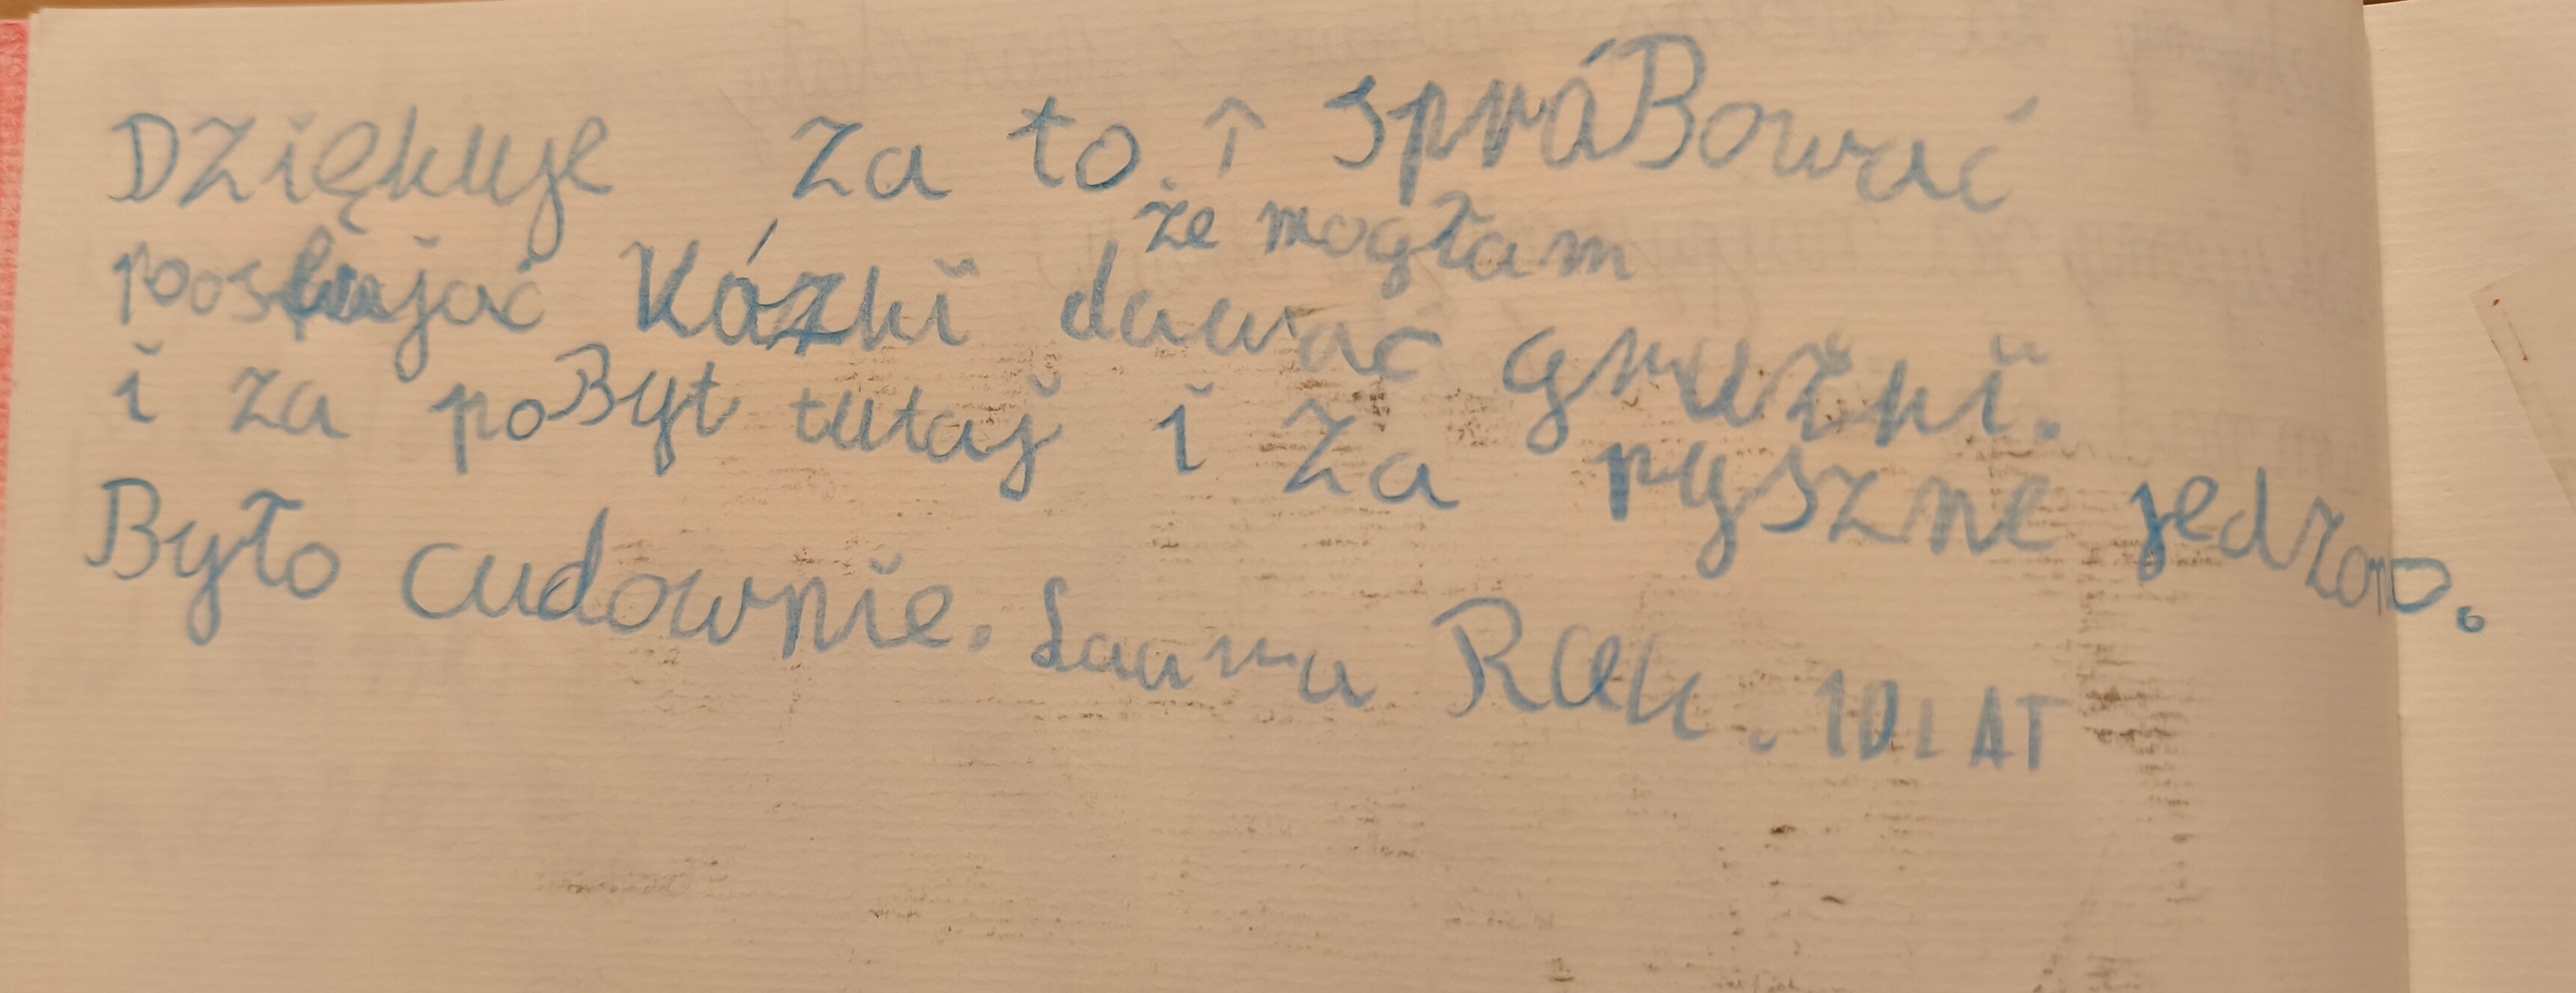 Dziękuje za to ↑ spráBować
że mogłam
kózki dawać gruzki.
i za poByt tutaj i za pyszne jedzono.
Było cudownie. Laura Rak. 10 LAT